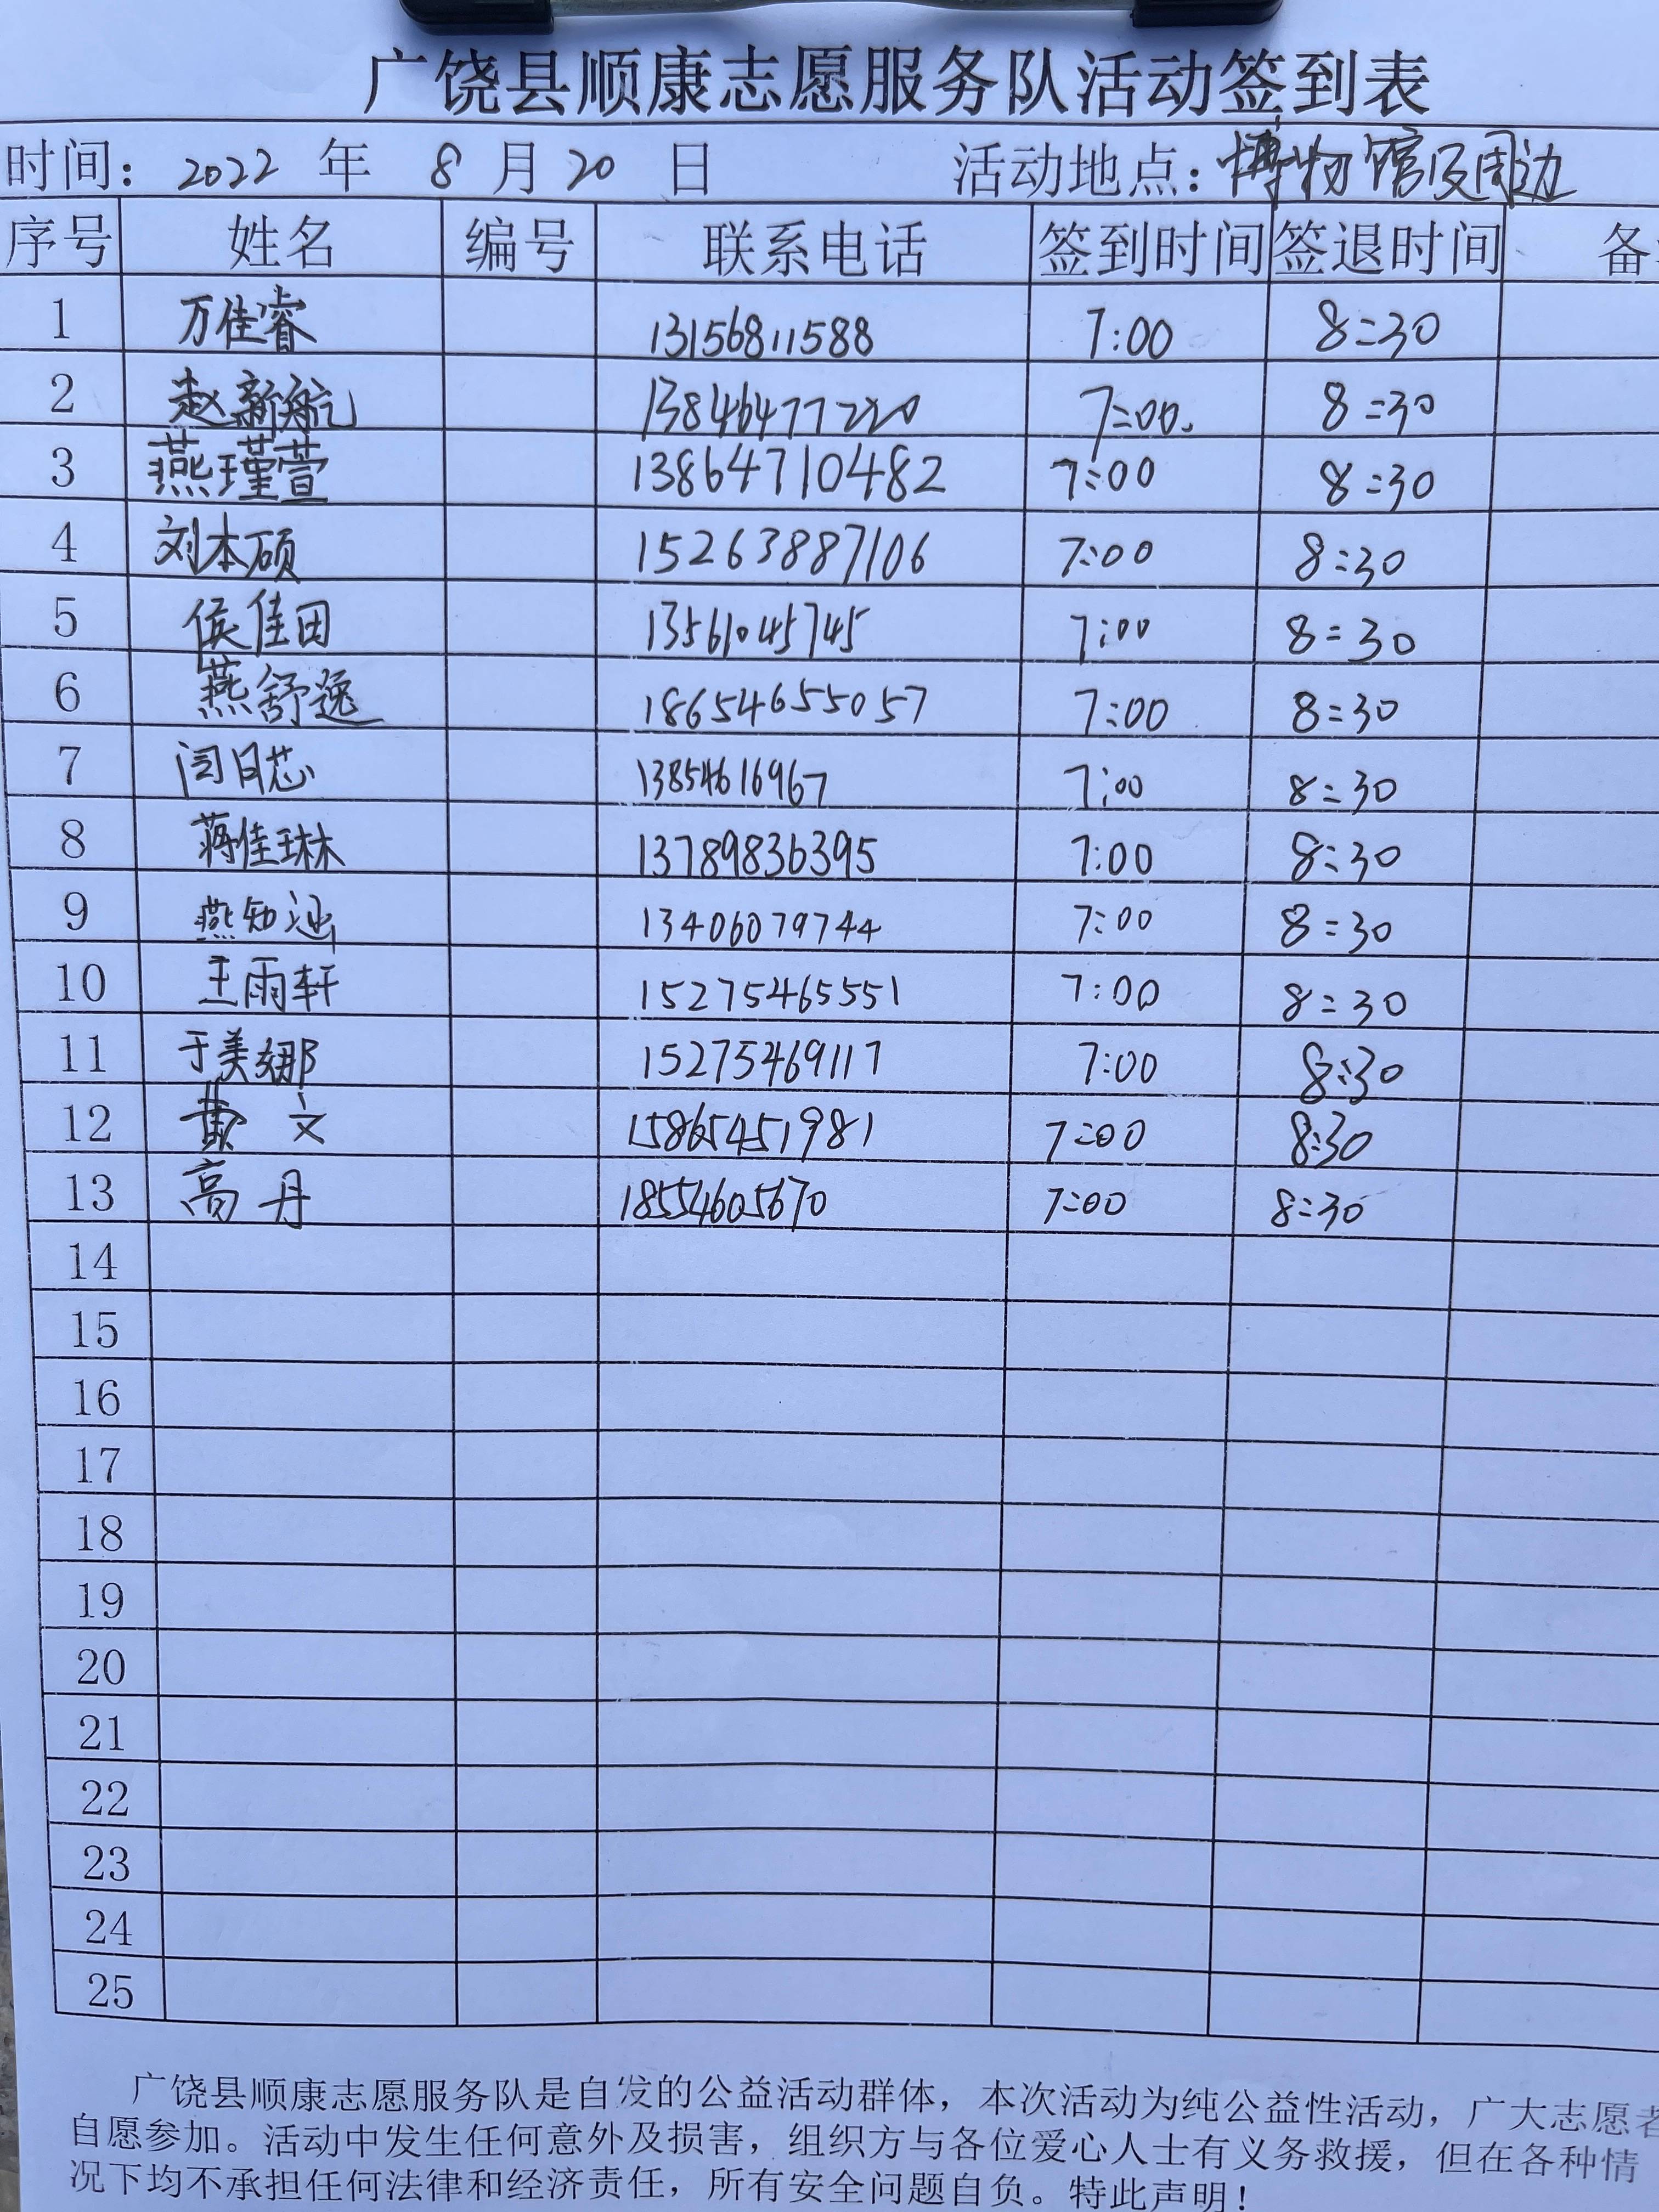 广饶县顺康志愿服务队活动签到表
时间：2022 年 8 月 20 日 活动地点：博物馆及周边
序号 姓名 编号 联系电话 签到时间 签退时间 备
1 万佳睿 13156811588 7:00 8:30
2 赵新航 13846477220 7:00. 8:30
3 燕瑾萱 13864710482 7:00 8:30
4 刘本硕 15263887106 7:00 8:30
5 侯佳田 13561045745 7:00 8:30
6 燕舒逸 18654655057 7:00 8:30
7 闫日芯 13854616967 7:00 8:30
8 蒋佳琳 13789836395 7:00 8:30
9 燕知涵 13406079744 7:00 8:30
10 王雨轩 15275465551 7:00 8:30
11 于美娜 15275469117 7:00 8:30
12 文 15865451981 7:00 8:30
13 高丹 18554605670 7:00 8:30
14
15
16
17
18
19
20
21
22
23
24
25
广饶县顺康志愿服务队是自发的公益活动群体，本次活动为纯公益性活动，广大志愿者
自愿参加。活动中发生任何意外及损害，组织方与各位爱心人士有义务救援，但在各种情
况下均不承担任何法律和经济责任，所有安全问题自负。特此声明！